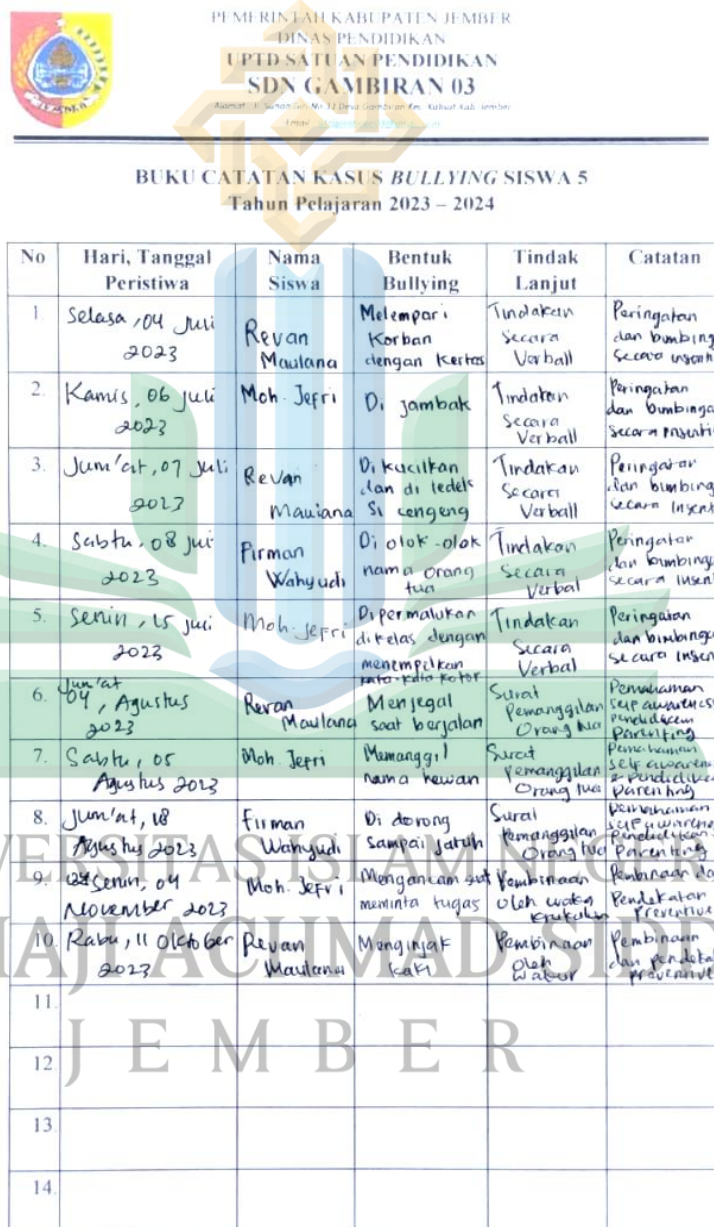 PEMERINTAH KABUPATEN JEMBER
DINAS PENDIDIKAN
UPTD SATUAN PENDIDIKAN
SDN GAMBIRAN 03
BUKU CATATAN KASUS BULLYING SISWA 5
Tahun Pelajaran 2023 – 2024
No Hari, Tanggal Peristiwa Nama Siswa Bentuk Bullying Tindak Lanjut Catatan
1. Selasa, 04 Juli 2023 Revan Maulana Melempari Korban dengan Kertas Tindakan Secara Verball Peringatan dan bimbing secara
2. Kamis, 06 juli 2023 Moh. Jefri Di jambak Tindakan Secara Verball Peringatan dan bimbinga secara
3. Jum'at, 07 Juli 2023 Revan Maulana Di kucilkan dan di ledek Si cengeng Tindakan Secara Verball Peringatan dan bimbing secara
4. Sabtu, 08 jul 2023 Firman Wahyudi Di olok-olok nama orang tua Tindakan Secara Verbal Peringatan dan bimbinga secara
5. Senin, 15 juli 2023 Moh. Jefri Dipermalukan dikelas dengan menempelkan kata-kata kotor Tindakan Secara Verbal Peringatan dan bimbinga secara
6. Jum'at 04, Agustus 2023 Revan Maulana Menjegal saat berjalan Surat Pemanggilan Orang tua Pemahaman self awarenes Parenting
7. Sabtu, 05 Agustus 2023 Moh. Jefri Memanggil nama hewan Surat Pemanggilan Orang tua Pemahaman self awarene & pendidika parenting
8. Jum'at, 18 Agustus 2023 Firman Wahyudi Di dorong Sampai jatuh Surat Pemanggilan Orang tua pemahaman self awarene Pendidikan Parenting
9. Senin, 04 November 2023 Moh. Jefri Mengancam meminta tugas Pembinaan oleh waka Pembinaan da Pendekatan Preventive
10. Rabu, 11 Oktober 2023 Revan Maulana Menginjak kaki Pembinaan oleh Pembinaan dan pendeka preventive
11.
12.
13.
14.
VERSITAS ISLAM NEGER
HAJI ACHMAD SIDD
JEMBER